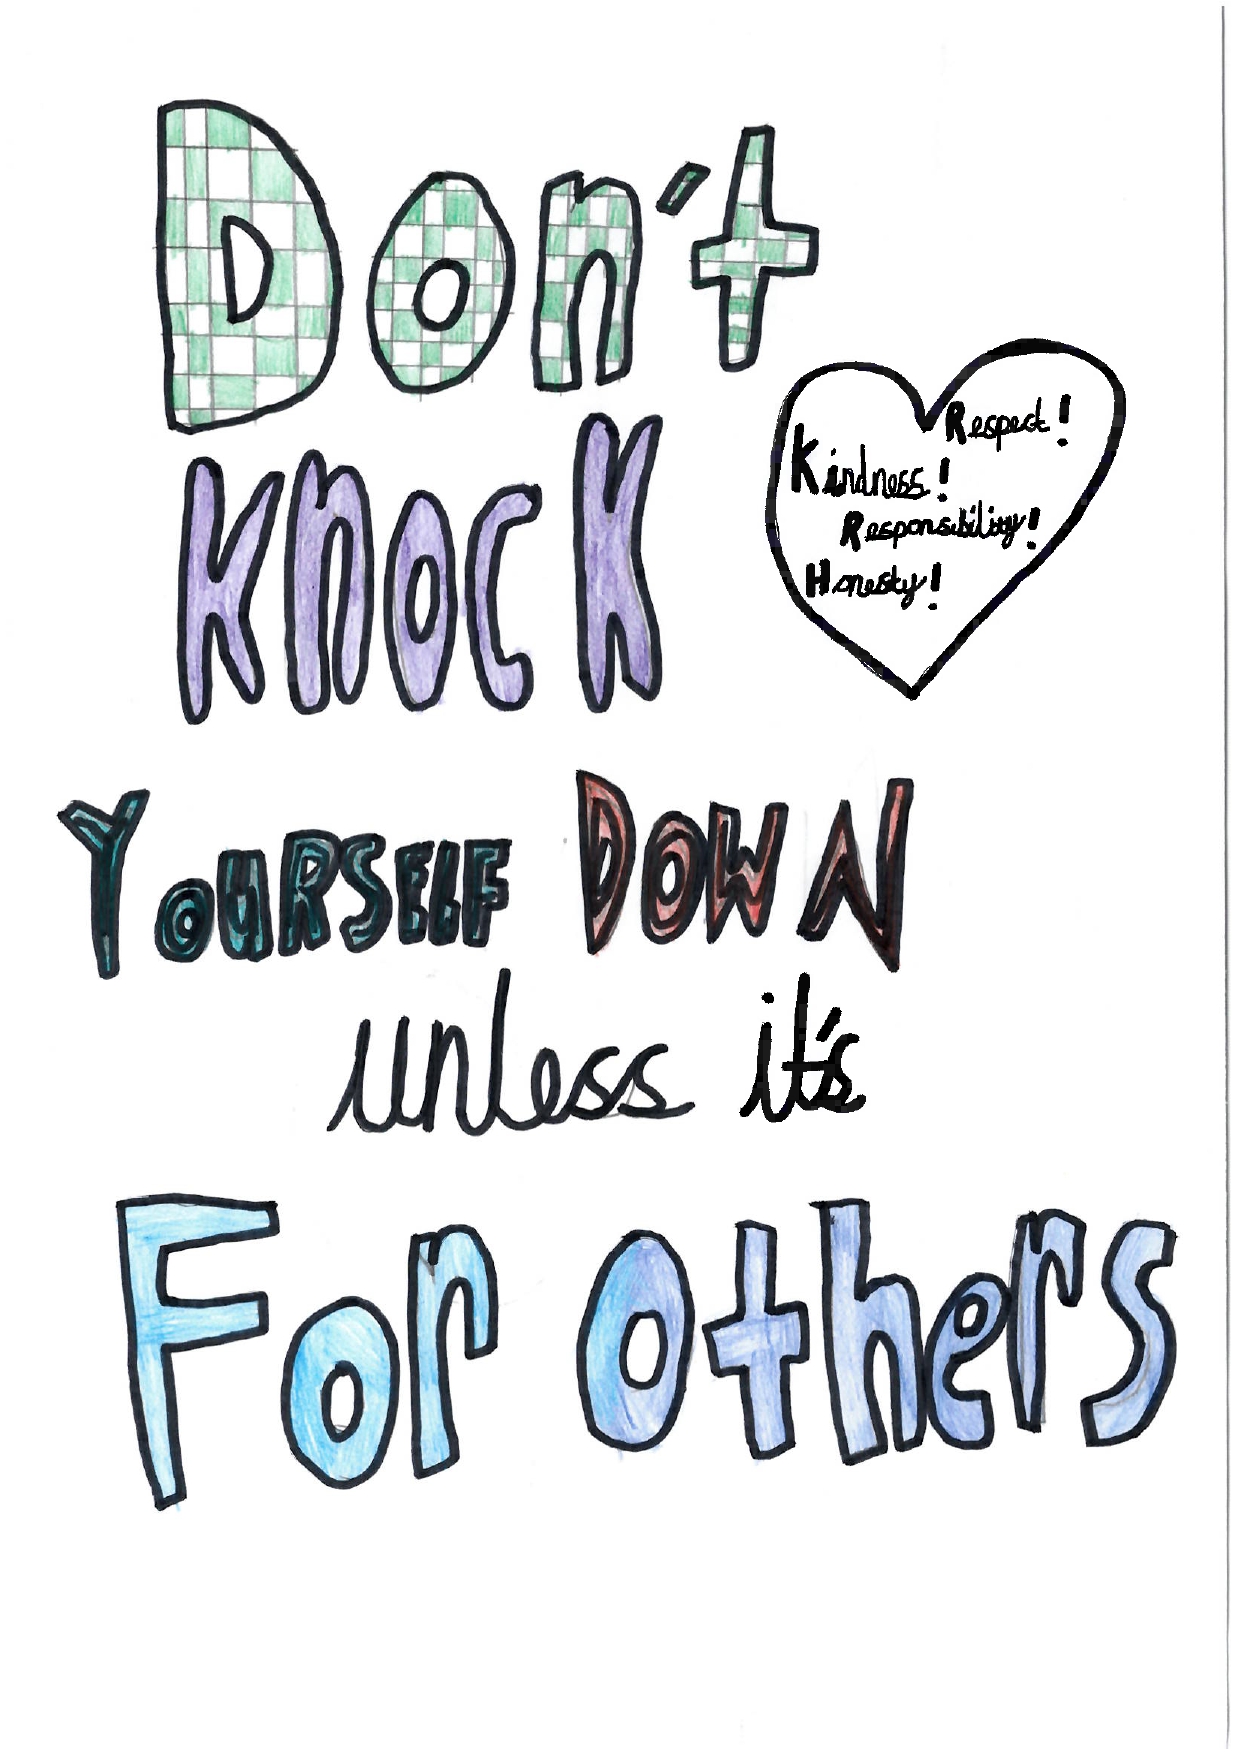 Don't
Knock
Respect!
Kindness!
Responsibility!
Honesty!
YOURSELF DOWN
unless it's
For Others